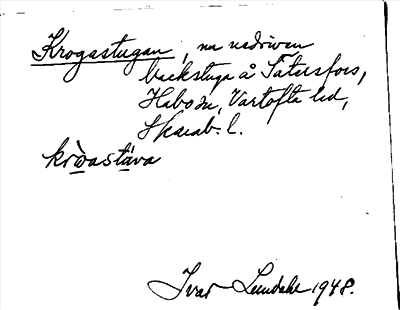 Krogastugan, nu nedriven
backstuga å Tätersfors,
Habo sn, Vartofta hd,
Skarab. l.
kròastáva
Ivar Lundahl 1948.